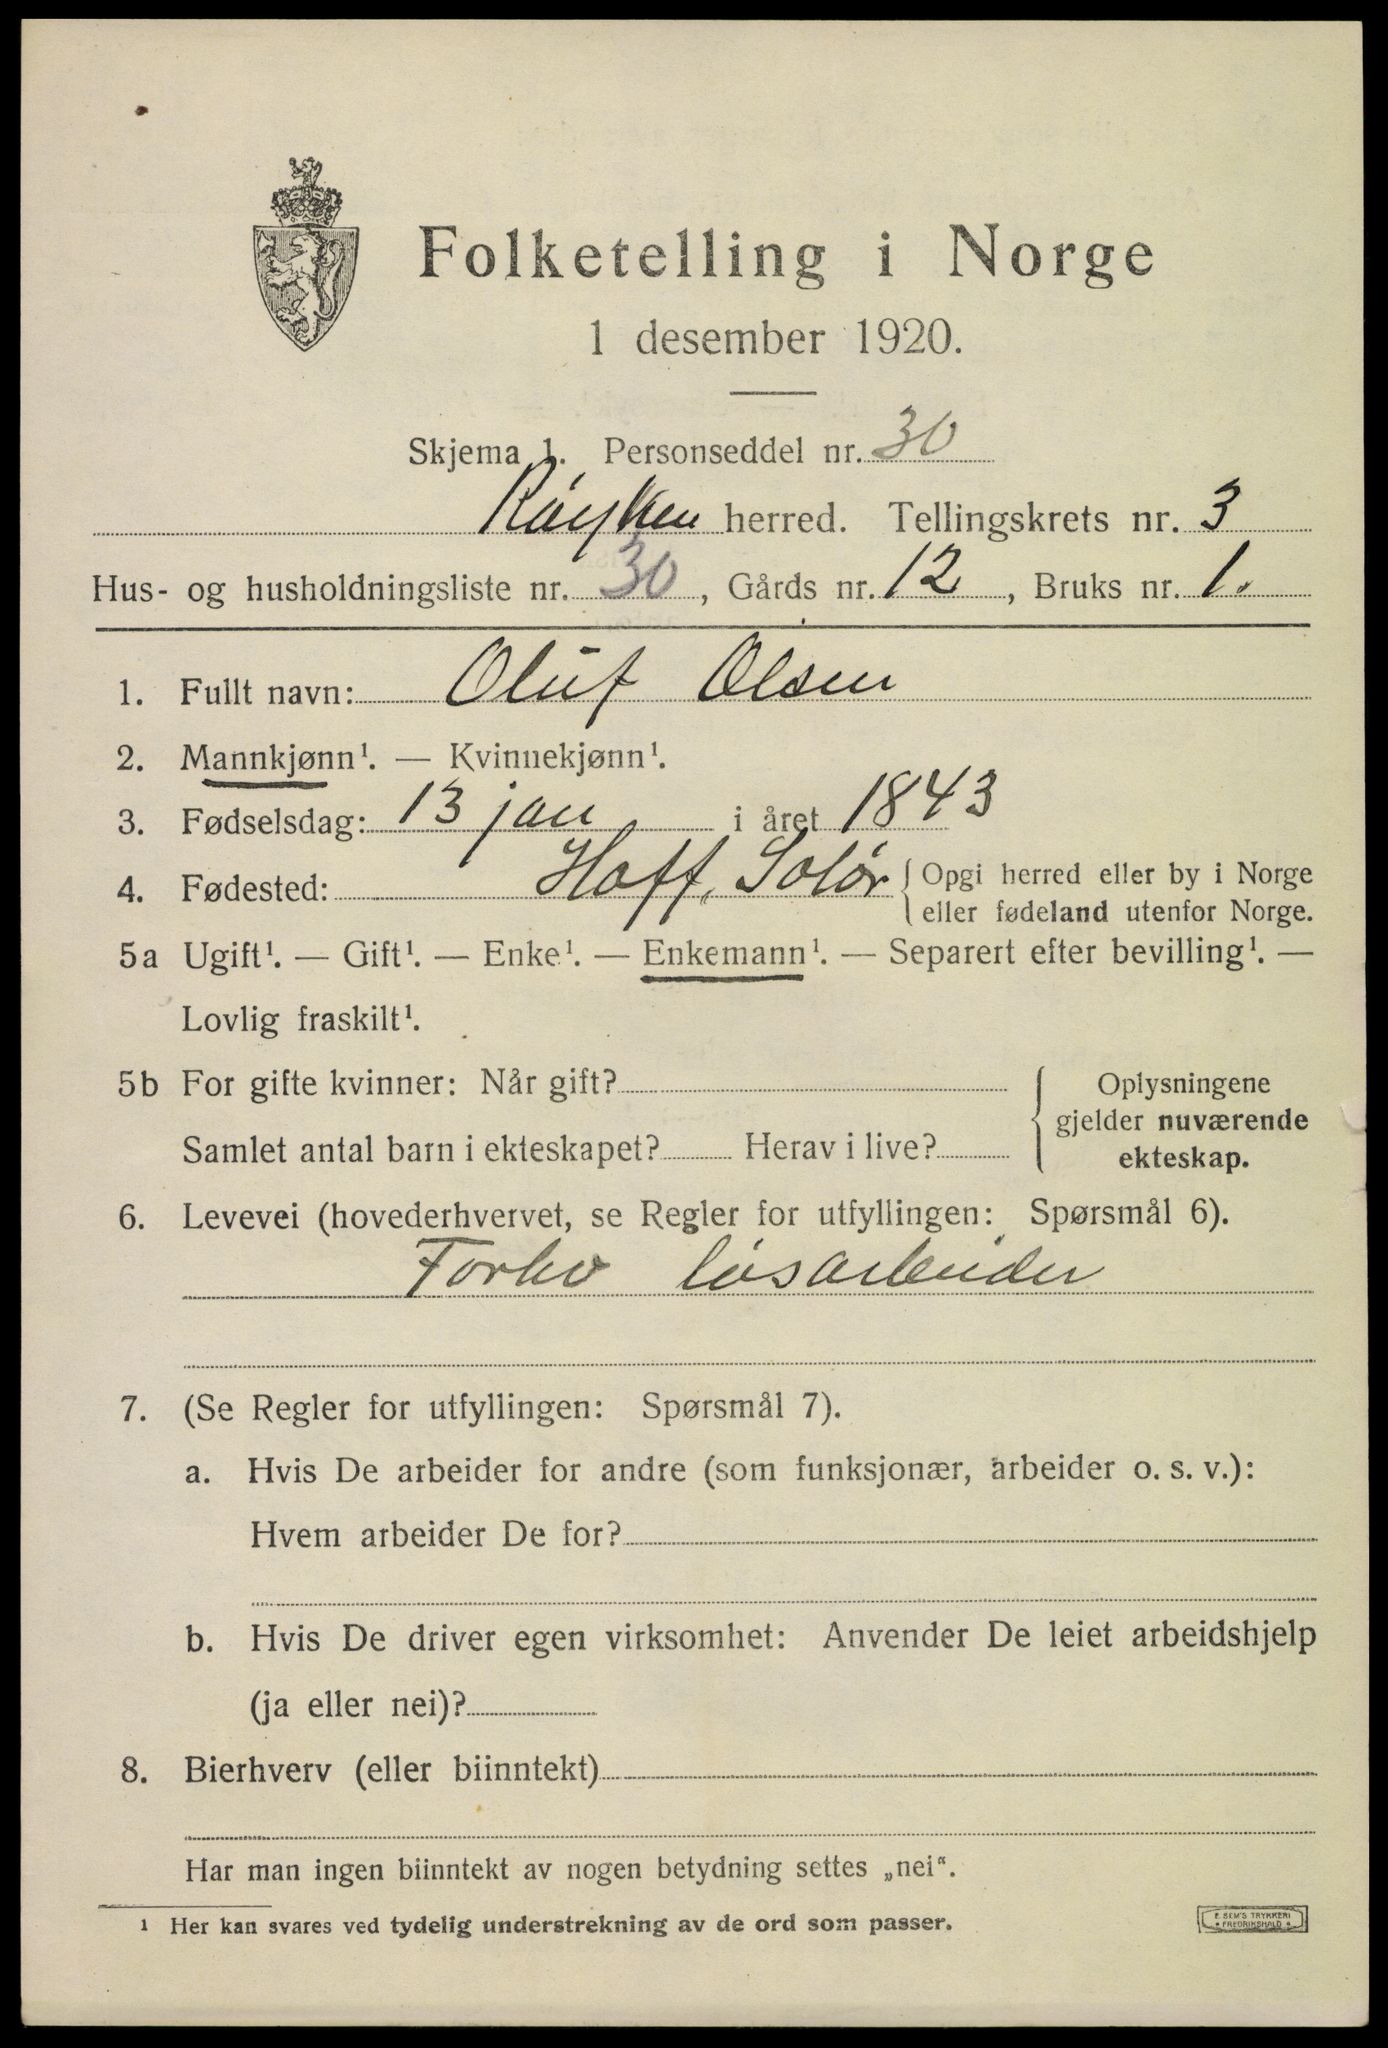 Folketelling i Norge
1 desember 1920.
Skjema 1. Personseddel nr. 30
Røyken herred. Tellingskrets nr. 3
Hus- og husholdningsliste nr. 30, Gårds nr. 12, Bruks nr. 1.
1. Fullt navn: Oluf Olsen
2. Mannkjønn¹. — Kvinnekjønn¹.
3. Fødselsdag: 13 jan i året 1843
4. Fødested: Hoff, Solør { Opgi herred eller by i Norge
eller fødeland utenfor Norge.
5a Ugift¹. — Gift¹. — Enke¹. — Enkemann¹. — Separert efter bevilling¹. —
Lovlig fraskilt¹.
5b For gifte kvinner: Når gift? { Oplysningene
gjelder nuværende
Samlet antal barn i ekteskapet? Herav i live? ekteskap.
6. Levevei (hovederhvervet, se Regler for utfyllingen: Spørsmål 6).
løsarbeider
7. (Se Regler for utfyllingen: Spørsmål 7).
a. Hvis De arbeider for andre (som funksjonær, arbeider o. s. v.):
Hvem arbeider De for?
b. Hvis De driver egen virksomhet: Anvender De leiet arbeidshjelp
(ja eller nei)?
8. Bierhverv (eller biinntekt)
Har man ingen biinntekt av nogen betydning settes „nei“.
¹ Her kan svares ved tydelig understrekning av de ord som passer.
F. SEM'S TRYKKERI
FREDRIKSHALD